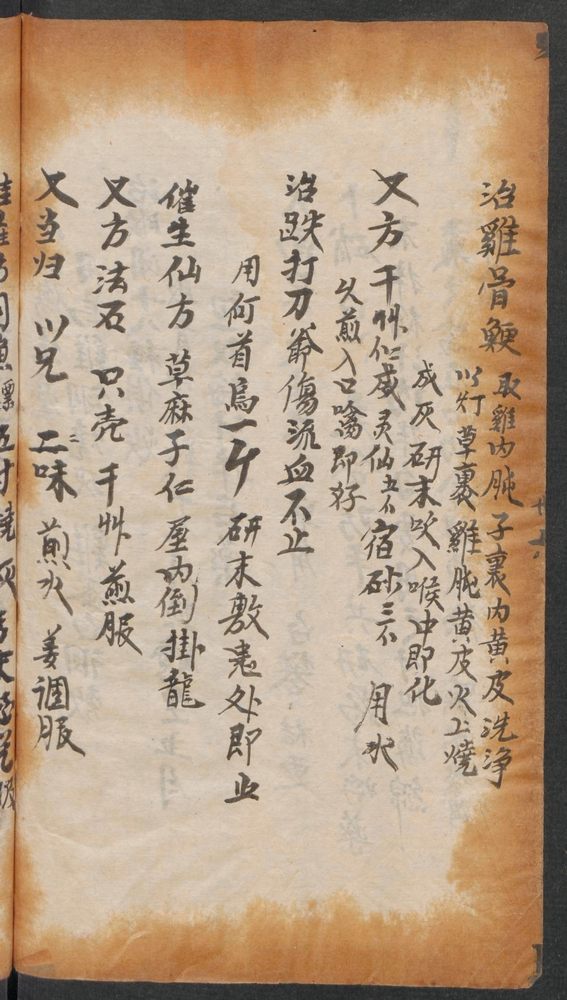 治雞骨鯁 取雞内肫子裏内黄皮洗浄
以灯草裹雞肫黄皮火上燒
成灰研末吹入喉中即化
又方 千艸仁 威灵仙五不 宿砂三不 用水
火煎入口噙即好
治跌打刀斧傷流血不止
用何首烏一斤 研末敷患处即止
催生仙方 草麻子仁 屋内倒掛龍
又方 法石 只壳 千艸 煎服
又当归 川兄 二味 煎水 姜調服